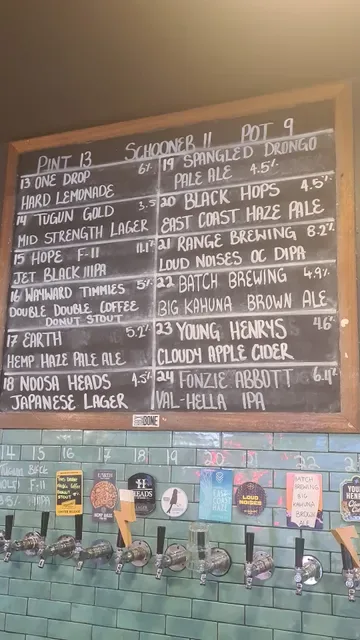 PINT 13 SCHOONER 11 POT 9
13 ONE DROP 6%
HARD LEMONADE
14 TUGUN GOLD 3.5
MID STRENGTH LAGER
15 HOPE F-11 11.1%
JET BLACK IIIPA
16 WAYWARD TIMMIES 5%
DOUBLE DOUBLE COFFEE
DONUT STOUT
17 EARTH 5.2%
HEMP HAZE PALE ALE
18 NOOSA HEADS 4.5%
JAPANESE LAGER
19 SPANGLED DRONGO
PALE ALE 4.5%
20 BLACK HOPS 4.5%
EAST COAST HAZE PALE
21 RANGE BREWING 8.2%
LOUD NOISES OC DIPA
22 BATCH BREWING 4.9%
BIG KAHUNA BROWN ALE
23 YOUNG HENRYS 4.6%
CLOUDY APPLE CIDER
24 FONZIE ABBOTT 6.4%
VAL-HELLA IPA
DONE
14 15 16 17 18 19 20 21 22
TUGUN
GOLD
3.5%
F-11
IIIPA
EARTH
HEADS
EAST
COAST
HAZE
LOUD
NOISES
BATCH
BREWING
BIG
KAHUNA
BROWN
ALE
YOUNG